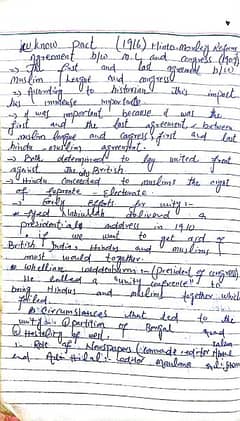 Lucknow pact (1916) Minto-Morley Reform
Agreement b/w M.L and congress (1909)
→ The first and last agreement b/w
Muslim League and congress
→ According to historian This impact
has immense importance
→ it was important because it was the
first and the last agreement between
muslim league and congress, first and last
hindu-muslim agreement.
→ Both determined to lay united front
against the British
→ Hindu conceeded to muslims the right
of separate Electorate.
→ Early efforts for unity:-
• Syed Nabiullah delivered a
presidential address in 1910
• if we want to get rid of
British / India, Hindus and muslims
must would together.
• William wedderburn:- (president of congress)
He called a "unity conference" to
bring Hindus and muslims together which
failed.
Circumstances that led to the
unity:- partition of Bengal
Hostility of
:- Role of Newspapers (comrade editor
and Al-Hilal:- editor maulana